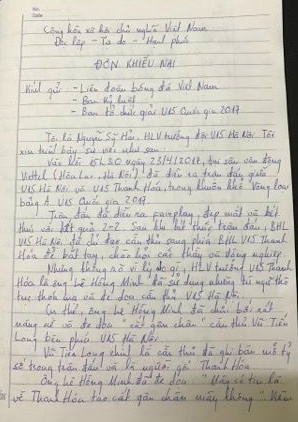 No.
Date
Cộng hòa xã hội chủ nghĩa Việt Nam
Độc lập - Tự do - Hạnh phúc
ĐƠN KHIẾU NẠI
Kính gửi - Liên đoàn bóng đá Việt Nam
- Ban kỷ luật
- Ban tổ chức giải U15 Quốc gia 2017
Tôi là Nguyễn Sỹ Hải, HLV trưởng đội U15 Hà Nội. Tôi
xin trình bày sự việc như sau.
Vào hồi 15h30 ngày 23/4/2017, tại sân vận động
Viettel (Hòa Lạc, Hà Nội) đã diễn ra trận đấu giữa
U15 Hà Nội và U15 Thanh Hóa, trong khuôn khổ Vòng loại
bảng A. U15 Quốc gia 2017
Trận đấu đã diễn ra fairplay, đẹp mắt và kết
thúc với kết quả 2-2. Sau khi kết thúc trận đấu, BHL
U15 Hà Nội đã chỉ đạo cầu thủ sang phía BHL U15 Thanh
Hóa để bắt tay, chào hỏi các thầy và đồng nghiệp.
Nhưng không rõ vì lý do gì, HLV trưởng U15 Thanh
Hóa là ông hệ Hồng Minh đã sử dụng những từ ngữ thô
tục thóa mạ và đe dọa cầu thủ U15 Hà Nội.
Cụ thể, ông hệ Hồng Minh đã chửi bới rất
nặng nề và đe dọa "cắt gân chân" cầu thủ Vũ Tiến
Long bên phía U15 Hà Nội.
Vũ Tiến Long chính là cầu thủ đã ghi bàn mở tỷ
số trong trận đấu và là người gốc Thanh Hóa
Ông hệ Hồng Minh đã đe dọa "Mày có tin là
về Thanh Hóa tao cắt gân chân mày không".